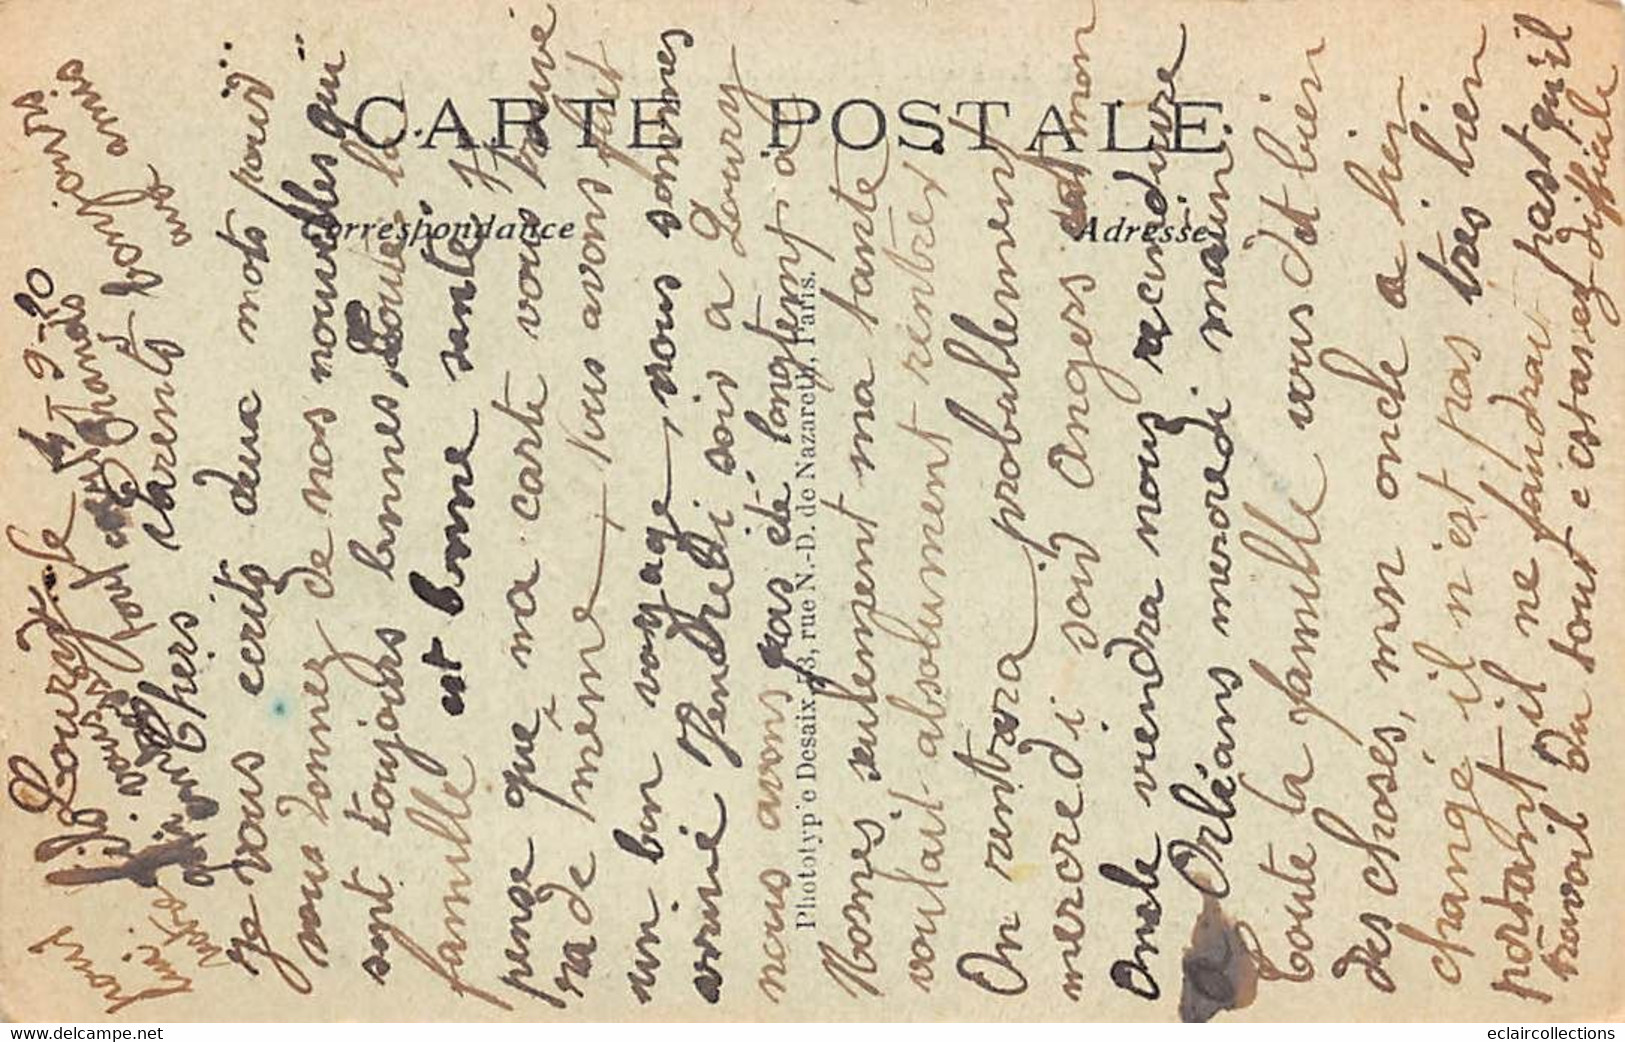 Loury le 4-9-20
Chers parents
je vous ecrits deux mots pour
vous donnez de nos nouvelles qui
sont toujours bonnes, toute la
famille est bonne santé. Je
pense que ma carte vous trouve
ra de même. Nous avons fait
un bon voyage, nous sommes
arrivé Vendredi soir a Loury
nous avons pas été longtemt à
Mones seulement ma tante
voulait absolument rentrer.
On rentrera probablement
mercredi soir Angers car mon
Oncle viendra nous reconduire
a Orléans mercredi matin.
Toute la famille vous dit bien
des choses, mon oncle a bien
changé il n'est pas très bien
portant il ne faudrait past qu'il
travail du tout c'est assez difficile
pour
lui.
votre
CARTE POSTALE
Correspondance
Adresse
Phototypie Desaix, 13, rue N.-D. de Nazareth, Paris.
www.delcampe.net
eclaircollections